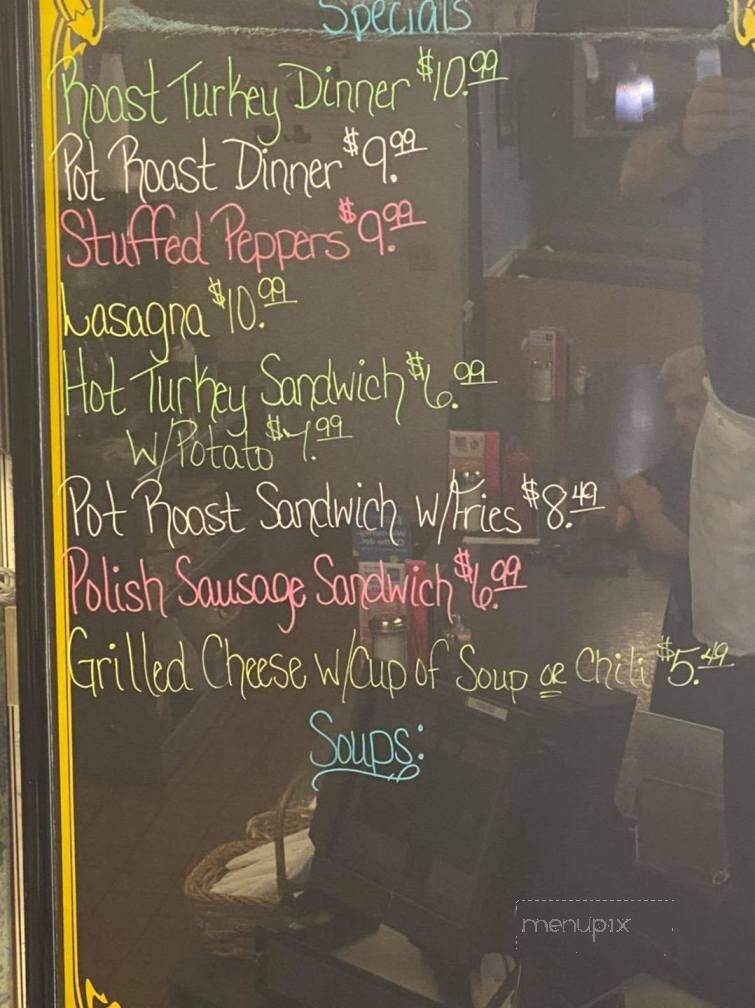 Specials
Roast Turkey Dinner $10.99
Pot Roast Dinner $9.99
Stuffed Peppers $9.99
Lasagna $10.99
Hot Turkey Sandwich $6.99
W/Potato $7.99
Pot Roast Sandwich w/Fries $8.49
Polish Sausage Sandwich $6.99
Grilled Cheese w/Cup of Soup or Chili $5.49
Soups:
menupix